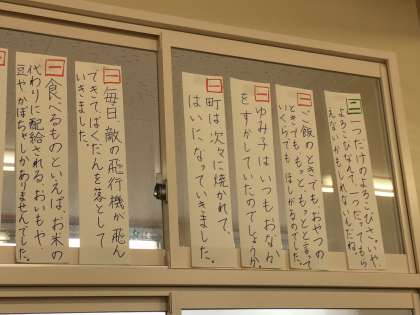 二 一つだけのよろこびさ。いや、
よろこびなんて一つだってもら
えないかもしれないんだね。
一 ご飯のときでもおやつの
ときでももっともっとと言って
いくらでもほしがるのでした。
一 ゆみ子はいつもおなか
をすかしていたのでしょうか。
一 町は次々に焼かれて、
はいになっていきました。
一 毎日敵の飛行機が飛ん
できてばくだんを落として
いきました。
一 食べるものといえば、お米の
代わりに配給される、おいもや
豆やかぼちゃしかありませんでした。